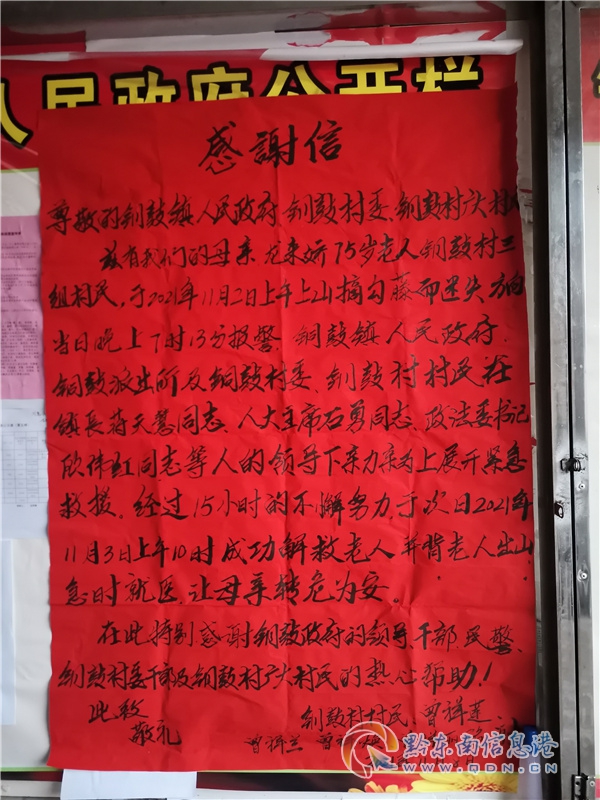 人民政府公开栏
感謝信
尊敬的铜鼓镇人民政府、铜鼓村委、铜鼓村广大村
兹有我们的母亲龙来娇75岁老人铜鼓村三
组村民,于2021年11月2日上午上山摘勾藤而迷失方向
当日晚上7时13分报警、铜鼓镇人民政府、
铜鼓派出所及铜鼓村委、铜鼓村村民在
镇長蒋天慧同志、人大主席石勇同志、政法委书记
欣伟虹同志等人的领导下亲力亲为上展开紧急
救援,经过15小时的不懈努力,于次日2021年
11月3日上午10时成功解救老人并背老人出山
急时就医,让母亲转危为安。
在此特别感谢铜鼓政府的领导、干部、民警、
铜鼓村委干部及铜鼓村广大村民的热心帮助!
此致
敬礼
铜鼓村村民、曾祥莲、
曾祥兰 曾
黔东南信息港
WWW.QDN.CN